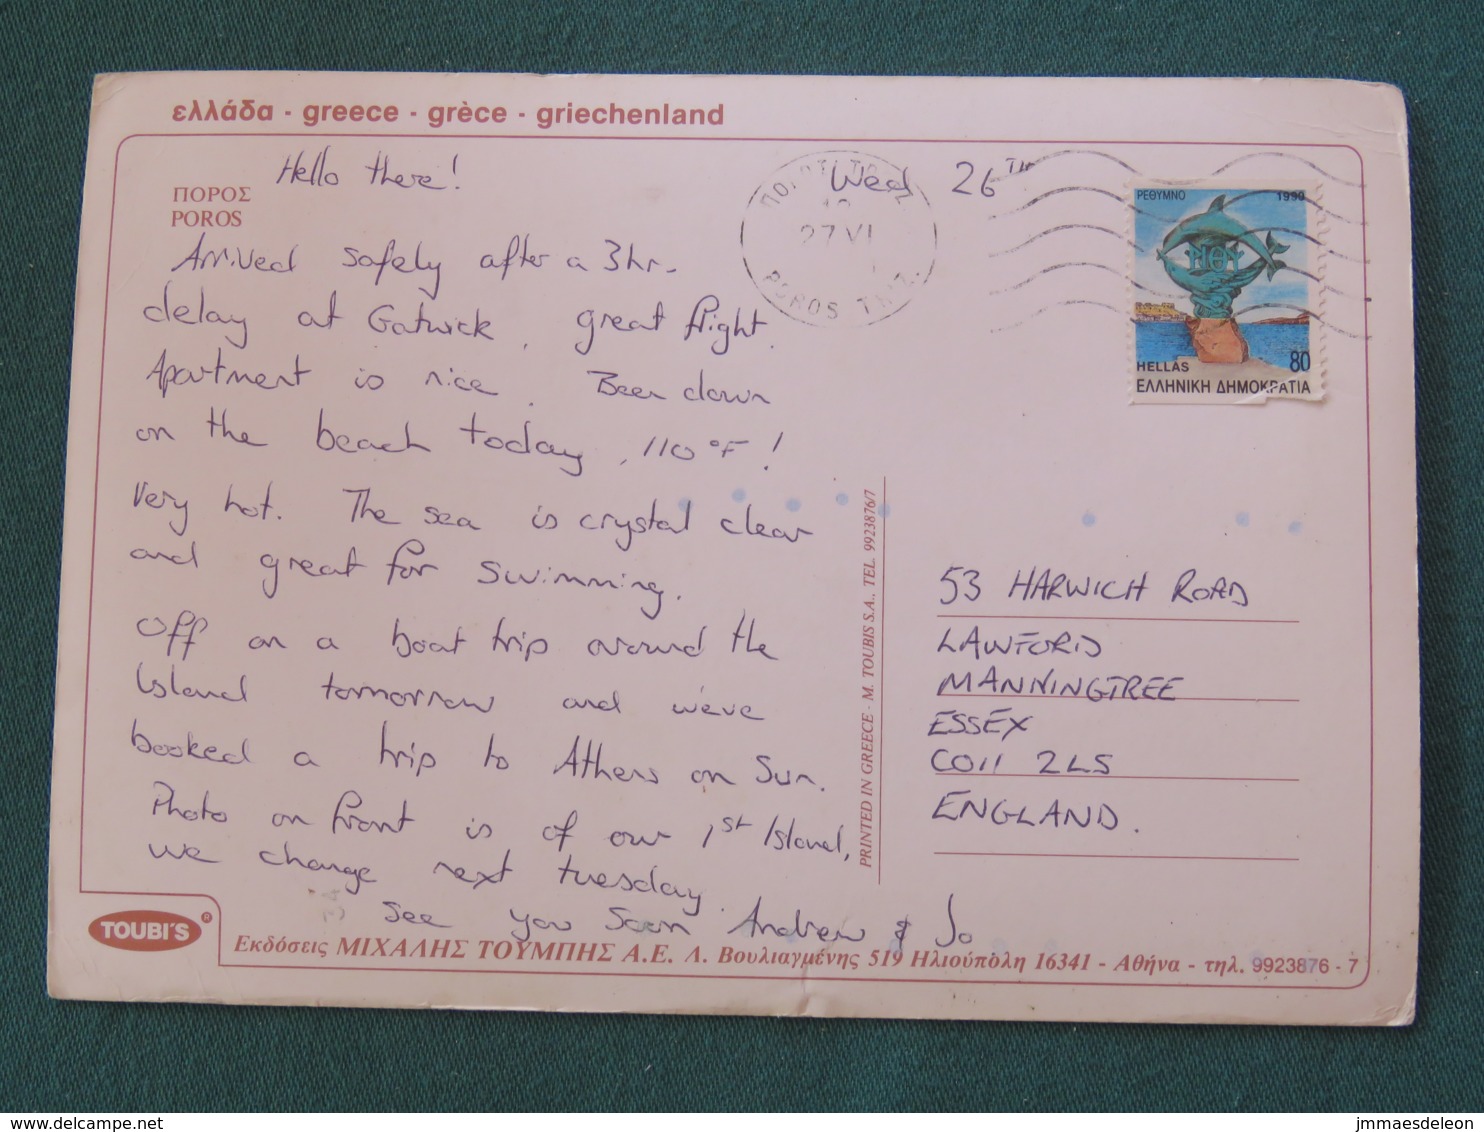 ελλάδα - greece - grèce - griechenland
ΠΟΡΟΣ
POROS
Hello there!
Wed 26TH
27 VI
POROS
ΡΕΘΥΜΝΟ 1990
HELLAS 80
ΕΛΛΗΝΙΚΗ ΔΗΜΟΚΡΑΤΙΑ
Arrived safely after a 3hr.
delay at Gatwick, great flight.
Apartment is nice. Been down
on the beach today, 110°F!
Very hot. The sea is crystal clear
and great for swimming.
Off on a boat trip around the
Island tomorrow and we've
booked a trip to Athens on Sun.
Photo on front is of our 1st Island,
we change next tuesday.
See you soon Andrew & Jo
PRINTED IN GREECE - M. TOUBIS S.A., TEL. 9923876/7
53 HARWICH ROAD
LAWFORD
MANNINGTREE
ESSEX
CO11 2LS
ENGLAND.
TOUBI'S ®
Εκδόσεις ΜΙΧΑΛΗΣ ΤΟΥΜΠΗΣ Α.Ε. Λ. Βουλιαγμένης 519 Ηλιούπολη 16341 - Αθήνα - τηλ. 9923876 - 7
delcampe.net
jmmaesdeleon